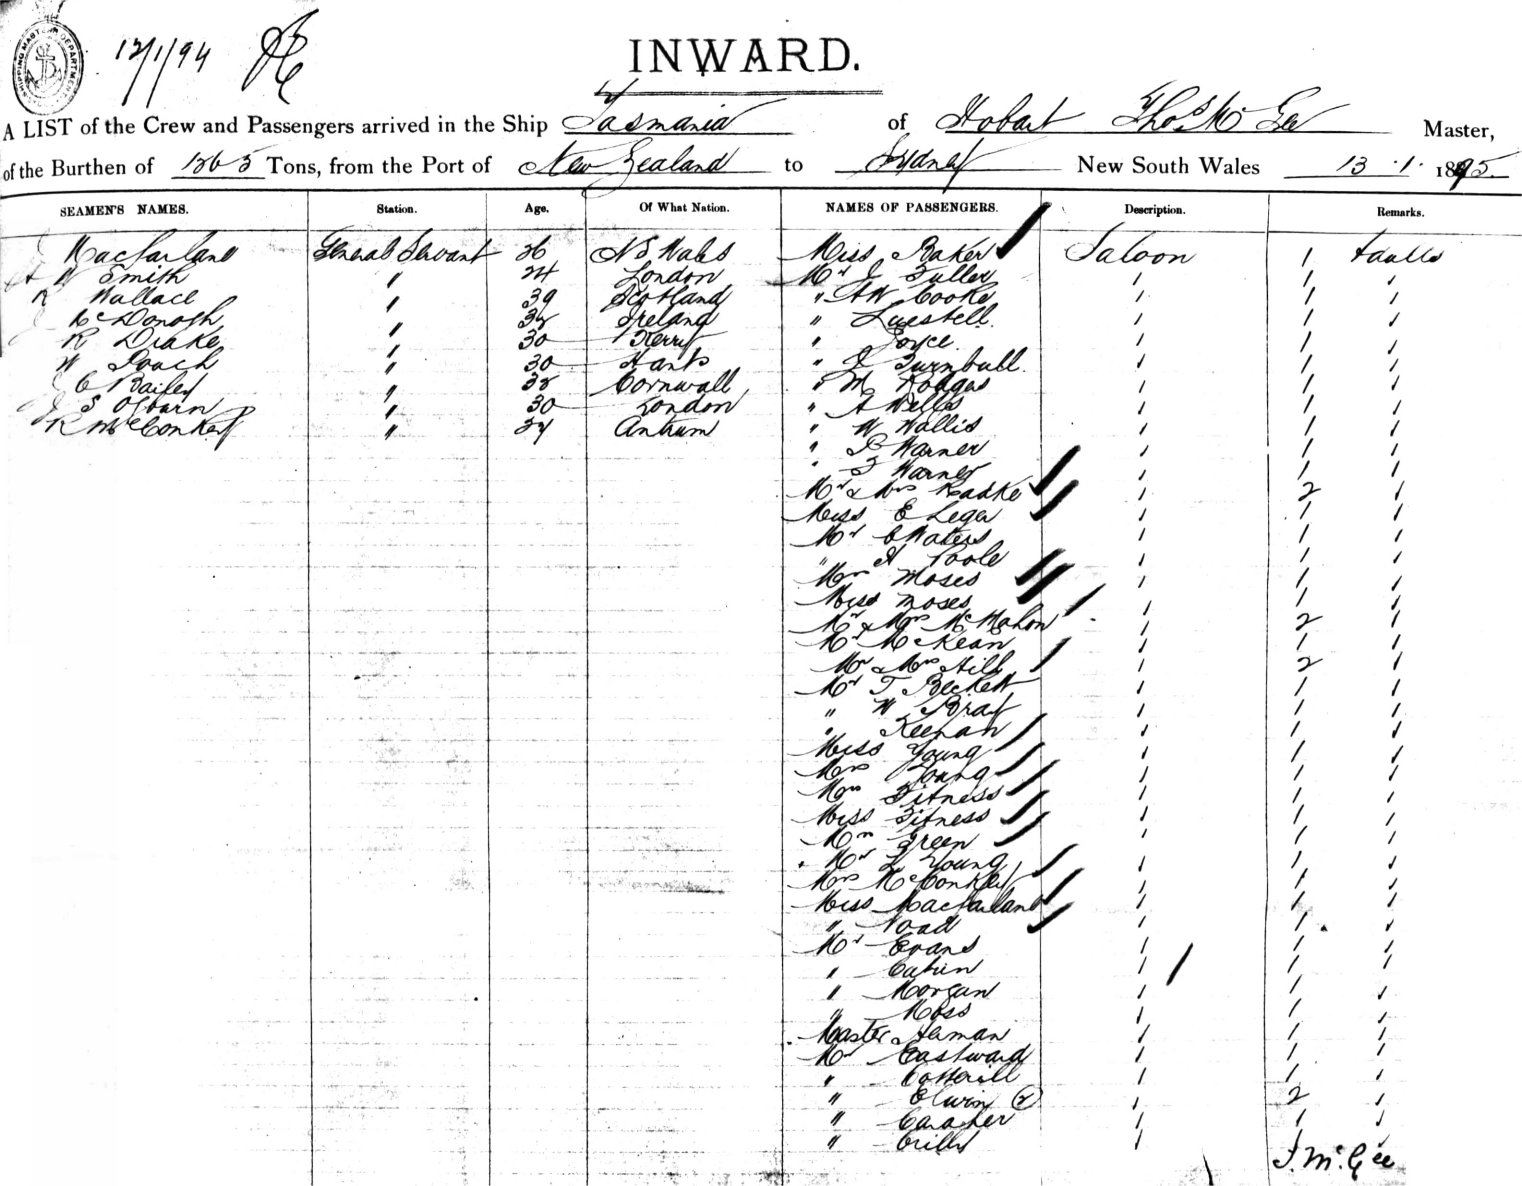 SHIPPING MASTER'S DEPARTMENT
12/1/94
INWARD.
A LIST of the Crew and Passengers arrived in the Ship Tasmania of Hobart Thos McGee Master,
of the Burthen of Tons, from the Port of New Zealand to Sydney New South Wales 13.1.1895
SEAMEN'S NAMES. Station. Age. Of What Nation. NAMES OF PASSENGERS. Description. Remarks.
Macfarland General Servant 26 N S Wales Miss Baker Saloon 1 Adults
W Smith " 24 London Mr J Fuller 1
R Wallace " 39 Scotland " AW Cooke 1
McDonogh " Ireland " 1
R Drake " 30 Kerry " Joyce 1
W " 30 Hants " J Turnbull 1
C Bailey " 38 Cornwall " M Hodges 1
S Osbarn " 30 London " A Wells 1
R McConkey " Antrum " W Wallis 1
" Warner 1
" Warner 1
Mr & Mrs Radke 2
Miss E Leger 1
Mr C Waters 1
" A Poole 1
Mrs Moses 1
Miss Moses 1
Mr & Mrs McMahon 2
Mr McKean 1
Mr & Mrs Hill 2
Mr T Beckett 1
" W Bray 1
" Keenan 1
Miss Young 1
Mrs Young 1
Mrs Fitness 1
Miss Fitness 1
Mrs Green 1
Mr L Young 1
Mrs McConkey 1
Miss Macfarland 1
" Noad 1
Mr Evans 1
" 1
" Morgan 1
" Moss 1
Master 1
Mr Eastward 1
" Cotterill 1
" Elwin (2) 2
" 1
" 1
T. McGee